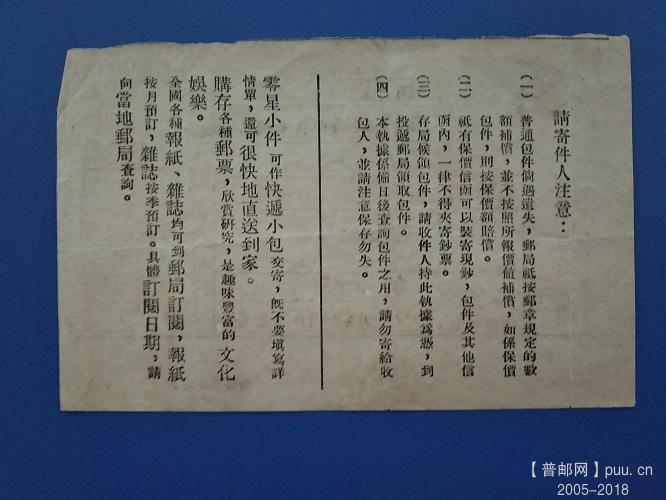 請寄件人注意：
(一) 普通包件倘遇遺失，郵局祇按郵章規定的數
額補償，並不按照所報價值補償，如係保價
包件，則按保價額賠償。
(二) 祇有保價信函可以裝寄現鈔，包件及其他信
函內，一律不得夾寄鈔票。
(三) 存局候領包件，請收件人持此執據為憑，到
投遞郵局領取包件。
(四) 本執據係備日後查詢包件之用，請勿寄給收
包人，並請注意保存勿失。
零星小件 可作快遞小包 交寄，旣不要填寫詳
情單，還可很快地直送到家。
購存各種郵票，欣賞研究，是趣味豐富的 文化
娛樂。
全國各種報紙、雜誌均可到郵局訂閱，報紙
按月預訂，雜誌按季預訂。具體訂閱日期，請
向當地郵局查詢。
【普邮网】puu.cn
2005-2018